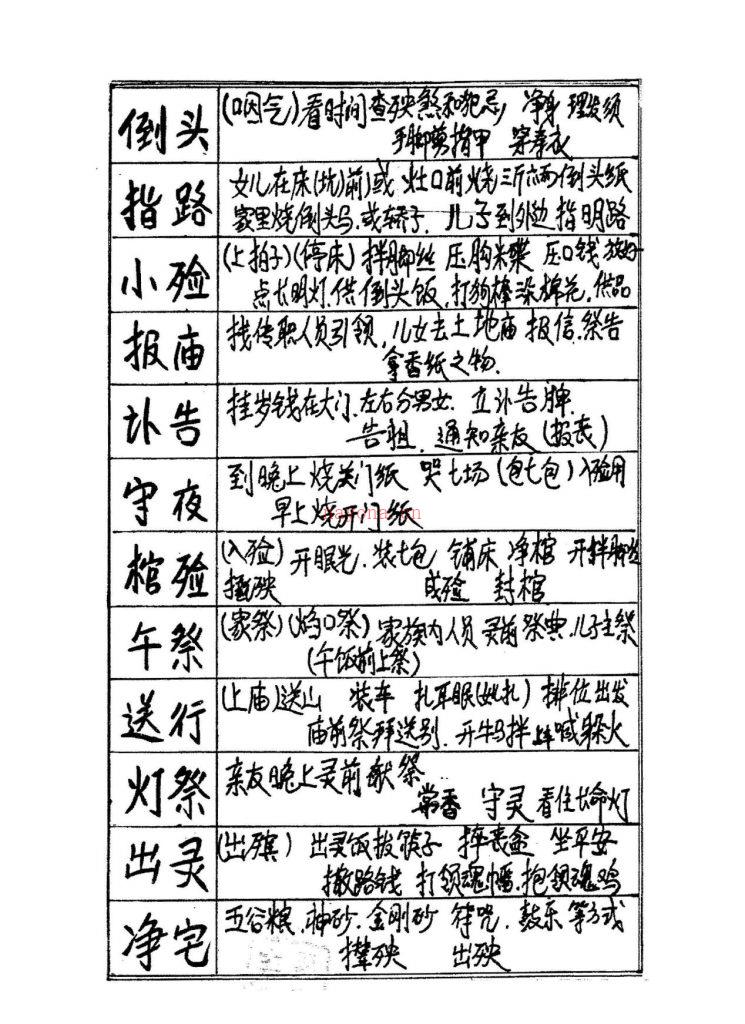 倒头
(咽气)看时间查殃煞和犯忌 净身 理发须
手脚剪指甲 穿寿衣
指路
女儿在床(坑)前)或 灶口前烧三斤六两倒头纸
家里烧倒头马.或轿子. 儿子到外边指明路
小殓
(上拍子)(停床) 拌脚丝 压胸米碟 压口钱 放好
点长明灯.供倒头饭,打狗棒.染棉花.供品
报庙
找传职人员引领,儿女去土地庙 报信.祭告
拿香纸之物.
讣告
挂岁钱在大门.左右分男女. 立讣告牌.
告祖. 通知亲友(报丧)
守夜
到晚上烧关门纸 哭七场(包七包)入殓用
早上烧开门纸
棺殓
(入殓) 开眼光.装七包 铺床 净棺 开拌脚丝
殃 成殓 封棺
午祭
(家祭)(焰口祭) 家族内人员 灵前祭典.儿子主祭
(午饭前上祭)
送行
(上庙)送山 装车 扎耳眼(女扎) 排位出发
庙前祭拜送别. 开牛马拌 喊躲火
灯祭
亲友晚上灵前献祭
常香 守灵 看住长命灯
出灵
(出殡) 出灵饭拔筷子 摔丧盆 坐平安
撒路钱 打领魂幡.抱领魂鸡
净宅
五谷粮.神砂.金刚砂 符咒.鼓乐等方式
撵殃 出殃